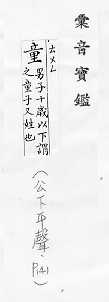 彙音寶鑑
ㄊㄨㄥ
童 男子十歲以下謂
之童子又姓也
(公下平聲, P41)